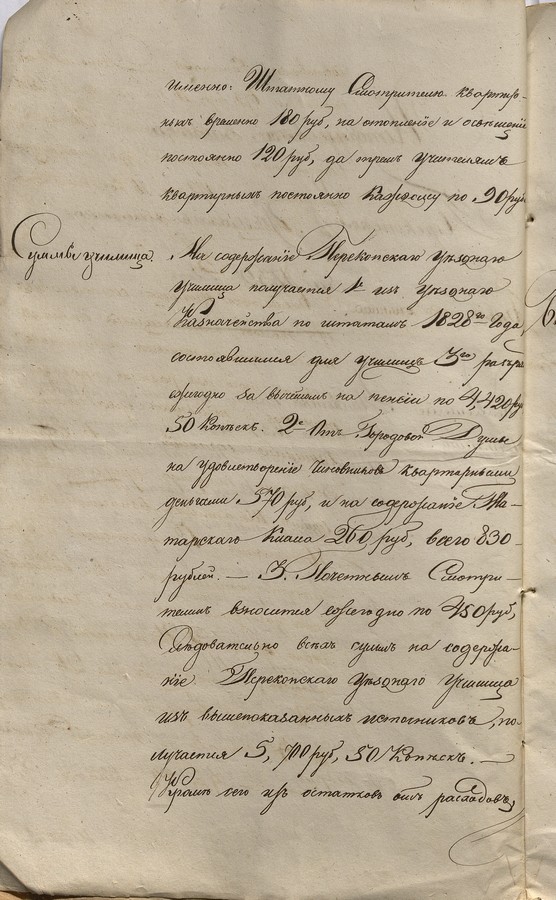 именно: Штатному Смотрителю квартир-
ныхъ временно 180 руб, на отопленіе и освѣщеніе
постоянно 120 руб, да тремъ учителямъ
квартирныхъ постоянно каждому по 90 руб.
Суммы училища.
На содержаніе Перекопскаго уѣзднаго
училища получается 1е изъ уѣзднаго
Казначейства по штатамъ 1828го года
состоявшимся для училищъ 3го разря
ежегодно за вычетомъ на пенсіи по 4,420 ру
50 копѣекъ. 2е Отъ Городовой Думы
на удовлетвореніе чиновниковъ квартирными
деньгами 570 руб, и на содержаніе Та-
тарскаго Класа 260 руб, всего 830
рублей. — 3. Почетнымъ Смотри-
телемъ вносится ежегодно по 450 руб,
Слѣдовательно всѣхъ сумъ на содержа-
ніе Перекопскаго Уѣзднаго Училища
изъ вышепоказанныхъ источниковъ, по-
лучается 5,700 руб, 50 копѣекъ. —
Кромѣ сего изъ остатковъ отъ расходовъ,